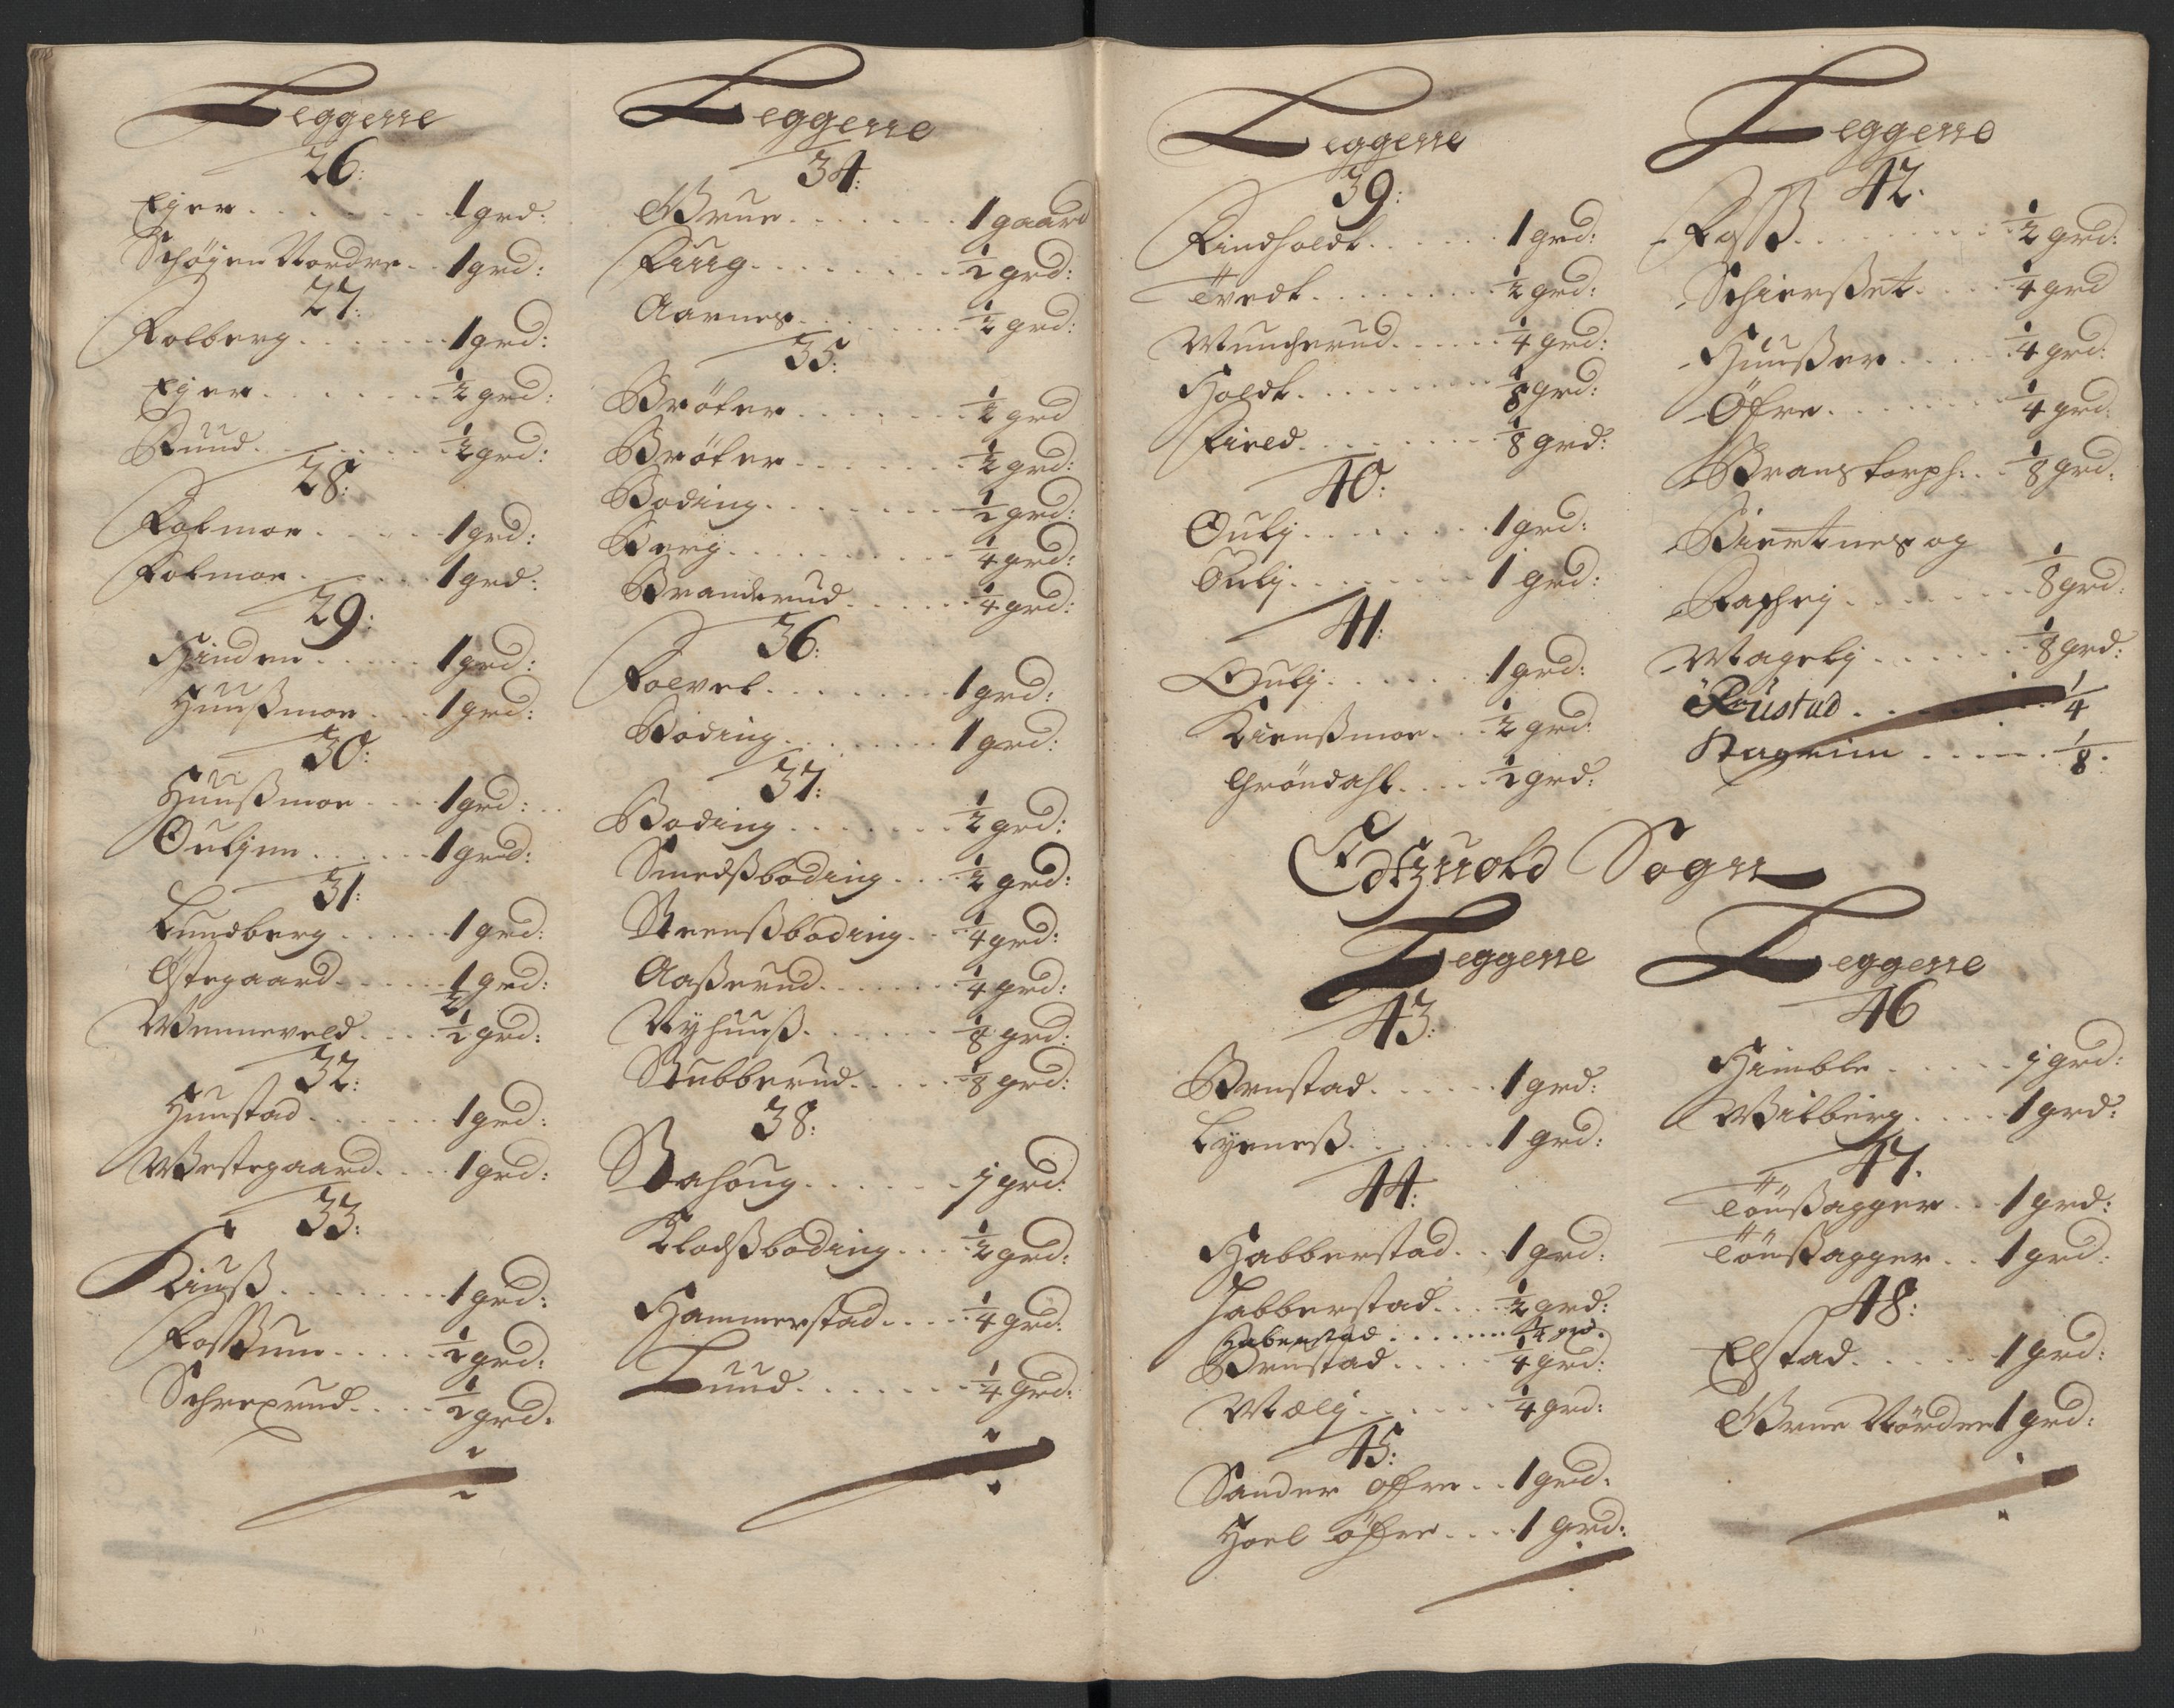 Leggerne
26:
Ejer . . . . . . 1 grd:
Schøjen Nordre . . 1 grd:
27:
Folberg . . . . . . 1 grd:
Ejer . . . . . . ½ grd:
Ruud . . . . . . ½ grd:
28:
Folmoe . . . . . 1 grd:
Folmoe . . . . . 1 grd:
29:
Hinden . . . . . 1 grd:
Huußmoe . . . 1 grd:
30:
Huußmoe . . . 1 grd:
Oulien . . . . . . 1 grd:
31:
Lundberg . . . . . 1 grd:
Østegaard . . . . . 1 grd:
½
Wenneveld . . . . ½ grd:
32:
Huustad . . . . . . 1 grd:
Westegaard . . . . 1 grd:
33:
Kiuß . . . . . . . 1 grd:
Foßum . . . . . ½ grd:
Schrexrud . . . . ½ grd:
Leggerne
34:
Grue . . . . . . . 1 gaard
Fiuig . . . . . . . . ½ grd:
Aarnes . . . . . . . ½ grd:
35:
Brøter . . . . . . . ½ grd
Brøter . . . . . . . ½ grd:
Boding . . . . . . . ½ grd:
Berg . . . . . . . . . ¼ grd:
Branderud . . . . . ¼ grd:
36:
Folvel . . . . . . . 1 grd:
Boding . . . . . . . 1 grd:
37:
Boding . . . . . . . ½ grd:
Smedßboding . . . ½ grd:
Steenßboding . . ¼ grd:
Aaßerud . . . . . . ¼ grd:
Nyhuuß . . . . . . ⅛ grd:
Stubberud . . . . . ⅛ grd:
38:
Bahoug . . . . . . . 1 grd:
Klodßboding . . . ½ grd:
Hammerstad . . . . ¼ grd:
Luud . . . . . . . ¼ grd:
Leggerne
39:
Findholdt . . . . . 1 grd:
Tvedt . . . . . . . . ½ grd:
Muncherud . . . . . ¼ grd:
Holdt . . . . . . . . ⅛ grd:
Field . . . . . . . . ⅛ grd:
40:
Oulj . . . . . . . . 1 grd:
Oulj . . . . . . . . 1 grd:
41:
Oulj . . . . . . . 1 grd:
Kienßmoe . . . ½ grd:
Grøndahl . . . . ½ grd:
Leggerne
42.
Foß . . . . . . . . . ½ grd:
Schierßet . . . . ¼ grd
Huußer . . . . . ¼ grd:
Øfre . . . . . . . ¼ grd:
Branstorph . . ⅛ grd:
Biertnes og
. . . . . . . . ⅛ grd:
Magelj . . . . . . . ⅛ grd:
Røustad . . . . . . . ¼
. . . . . ⅛.
Edtzuold Sogn
Leggerne
43:
Brustad . . . . . 1 grd:
Lyneß . . . . . . . 1 grd:
44:
Habberstad . . 1 grd:
Habberstad . . . ½ grd:
Haberstad . . . . . . . ¼ grd.
Brustad . . . . . ¼ grd:
Mælj . . . . . . ¼ grd:
45:
Sander øfre . . 1 grd:
Hoel øfre . . . . 1 grd:
Leggerne
46
Himble . . . . . 1 grd:
Wilberg . . . . . 1 grd:
47.
Tönßagger . . 1 grd:
Tönßagger . . 1 grd:
48:
Elstad . . . . . 1 grd:
Grue Nördre 1 grd: